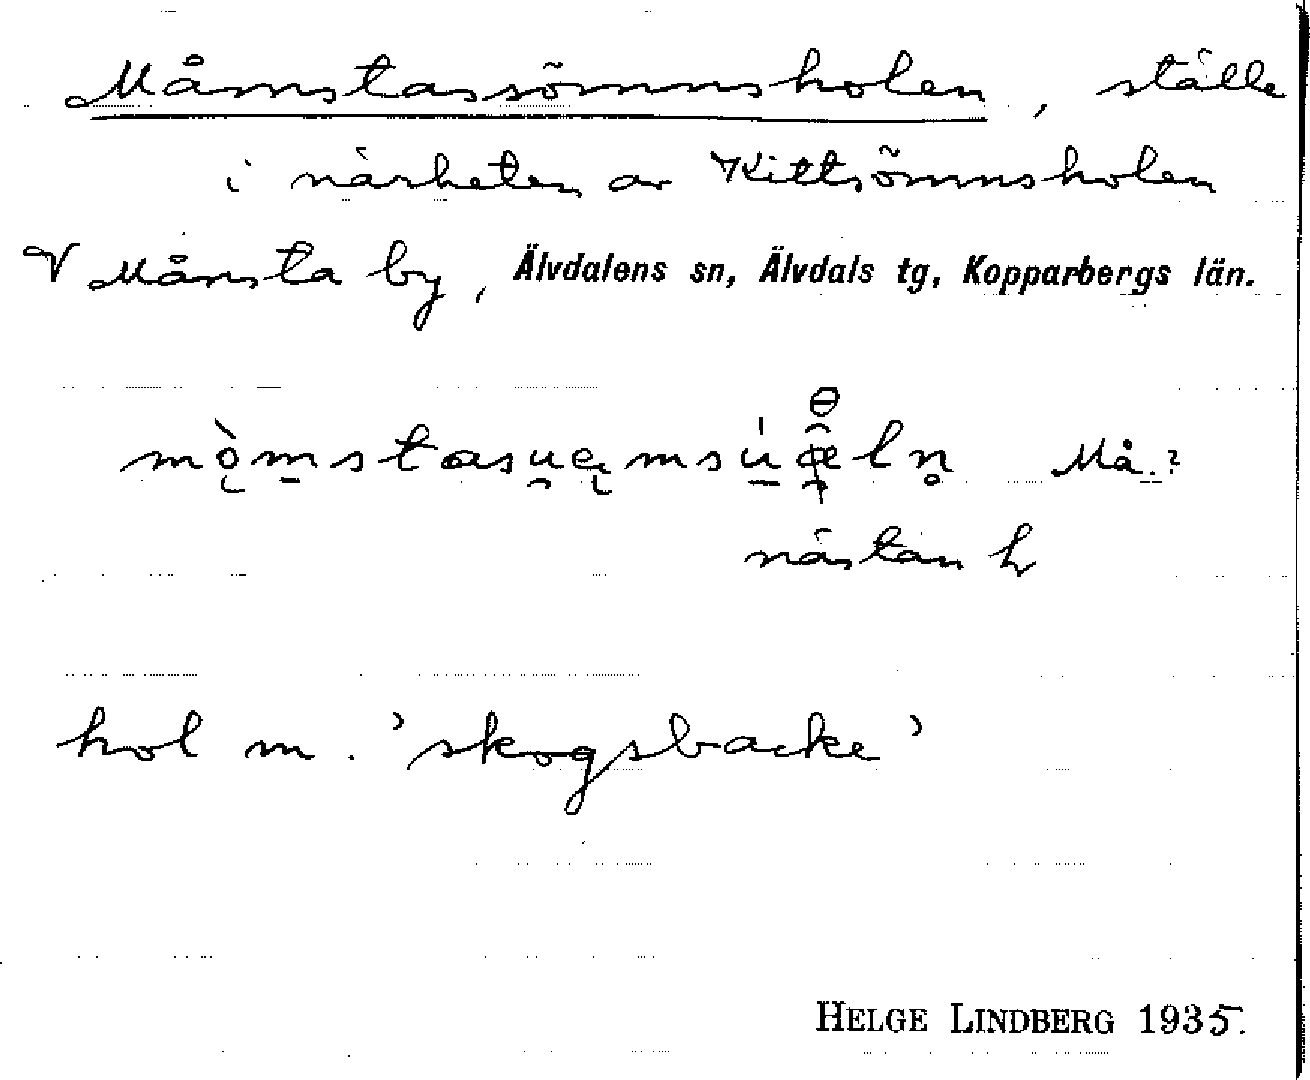 Måmstassömmsholen, ställe
i närheten av Kittsömmsholen
V Månsta by, Älvdalens sn, Älvdals tg, Kopparbergs län.
Må.?
nästan h
hol m. 'skogsbacke'
HELGE LINDBERG 1935.